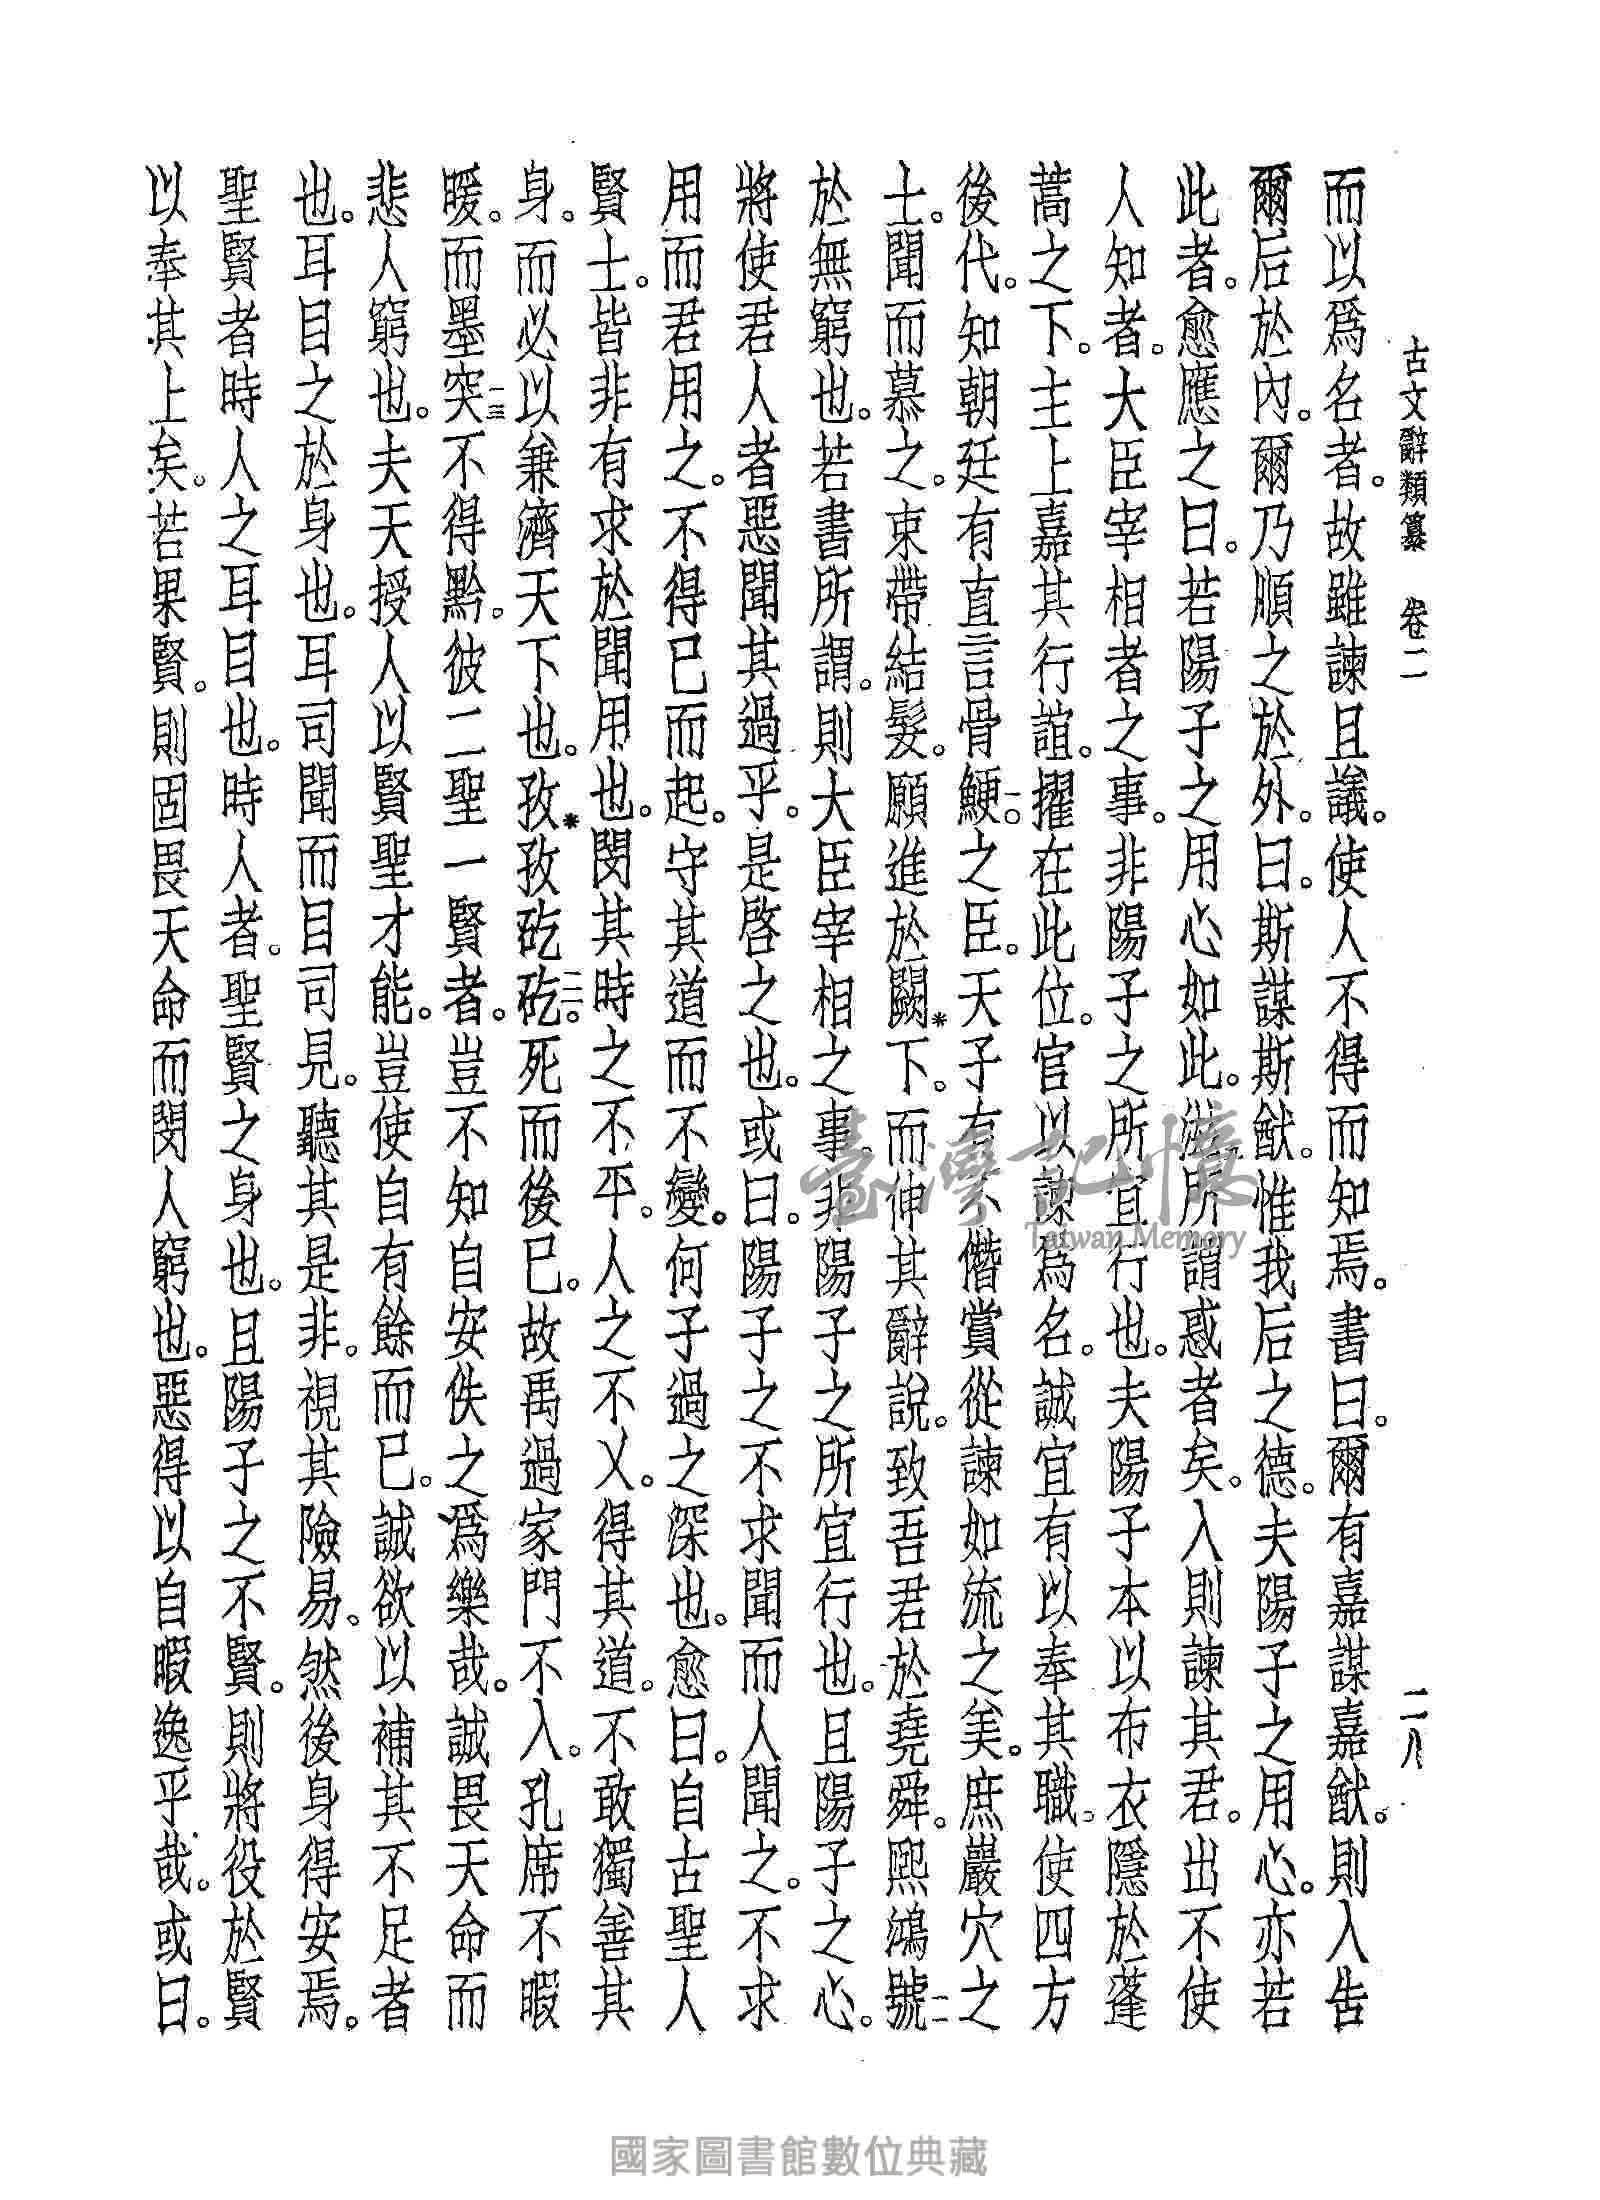 古文辭類纂　卷二　二八
而以爲名者。故雖諫且議。使人不得而知焉。書曰。爾有嘉謀嘉猷。則入告
爾后於內。爾乃順之於外。曰。斯謀斯猷。惟我后之德。夫陽子之用心。亦若
此者。愈應之曰。若陽子之用心如此。滋所謂惑者矣。入則諫其君。出不使
人知者。大臣宰相者之事。非陽子之所宜行也。夫陽子本以布衣隱於蓬
蒿之下。主上嘉其行誼。擢在此位。官以諫爲名。誠宜有以奉其職。使四方
後代。知朝廷有直言骨鯁一〇之臣。天子有不僭賞從諫如流之美。庶巖穴之
士。聞而慕之。束帶結髮。願進於闕*下。而伸其辭說。致吾君於堯舜。熙鴻號一一
於無窮也。若書所謂。則大臣宰相之事。非陽子之所宜行也。且陽子之心。
將使君人者惡聞其過乎。是啓之也。或曰。陽子之不求聞而人聞之。不求
用而君用之。不得已而起。守其道而不變。何子過之深也。愈曰。自古聖人
賢士。皆非有求於聞用也。閔其時之不平。人之不乂。得其道。不敢獨善其
身。而必以兼濟天下也。孜*孜矻矻一二。死而後已。故禹過家門不入。孔席不暇
暖。而墨突一三不得黔。彼二聖一賢者。豈不知自安佚之爲樂哉。誠畏天命而
悲人窮也。夫天授人以賢聖才能。豈使自有餘而已。誠欲以補其不足者
也。耳目之於身也。耳司聞而目司見。聽其是非。視其險易。然後身得安焉。
聖賢者時人之耳目也。時人者。聖賢之身也。且陽子之不賢。則將役於賢
以奉其上矣。若果賢。則固畏天命而閔人窮也。惡得以自暇逸乎哉。或曰。
臺灣記憶
Taiwan Memory
國家圖書館數位典藏